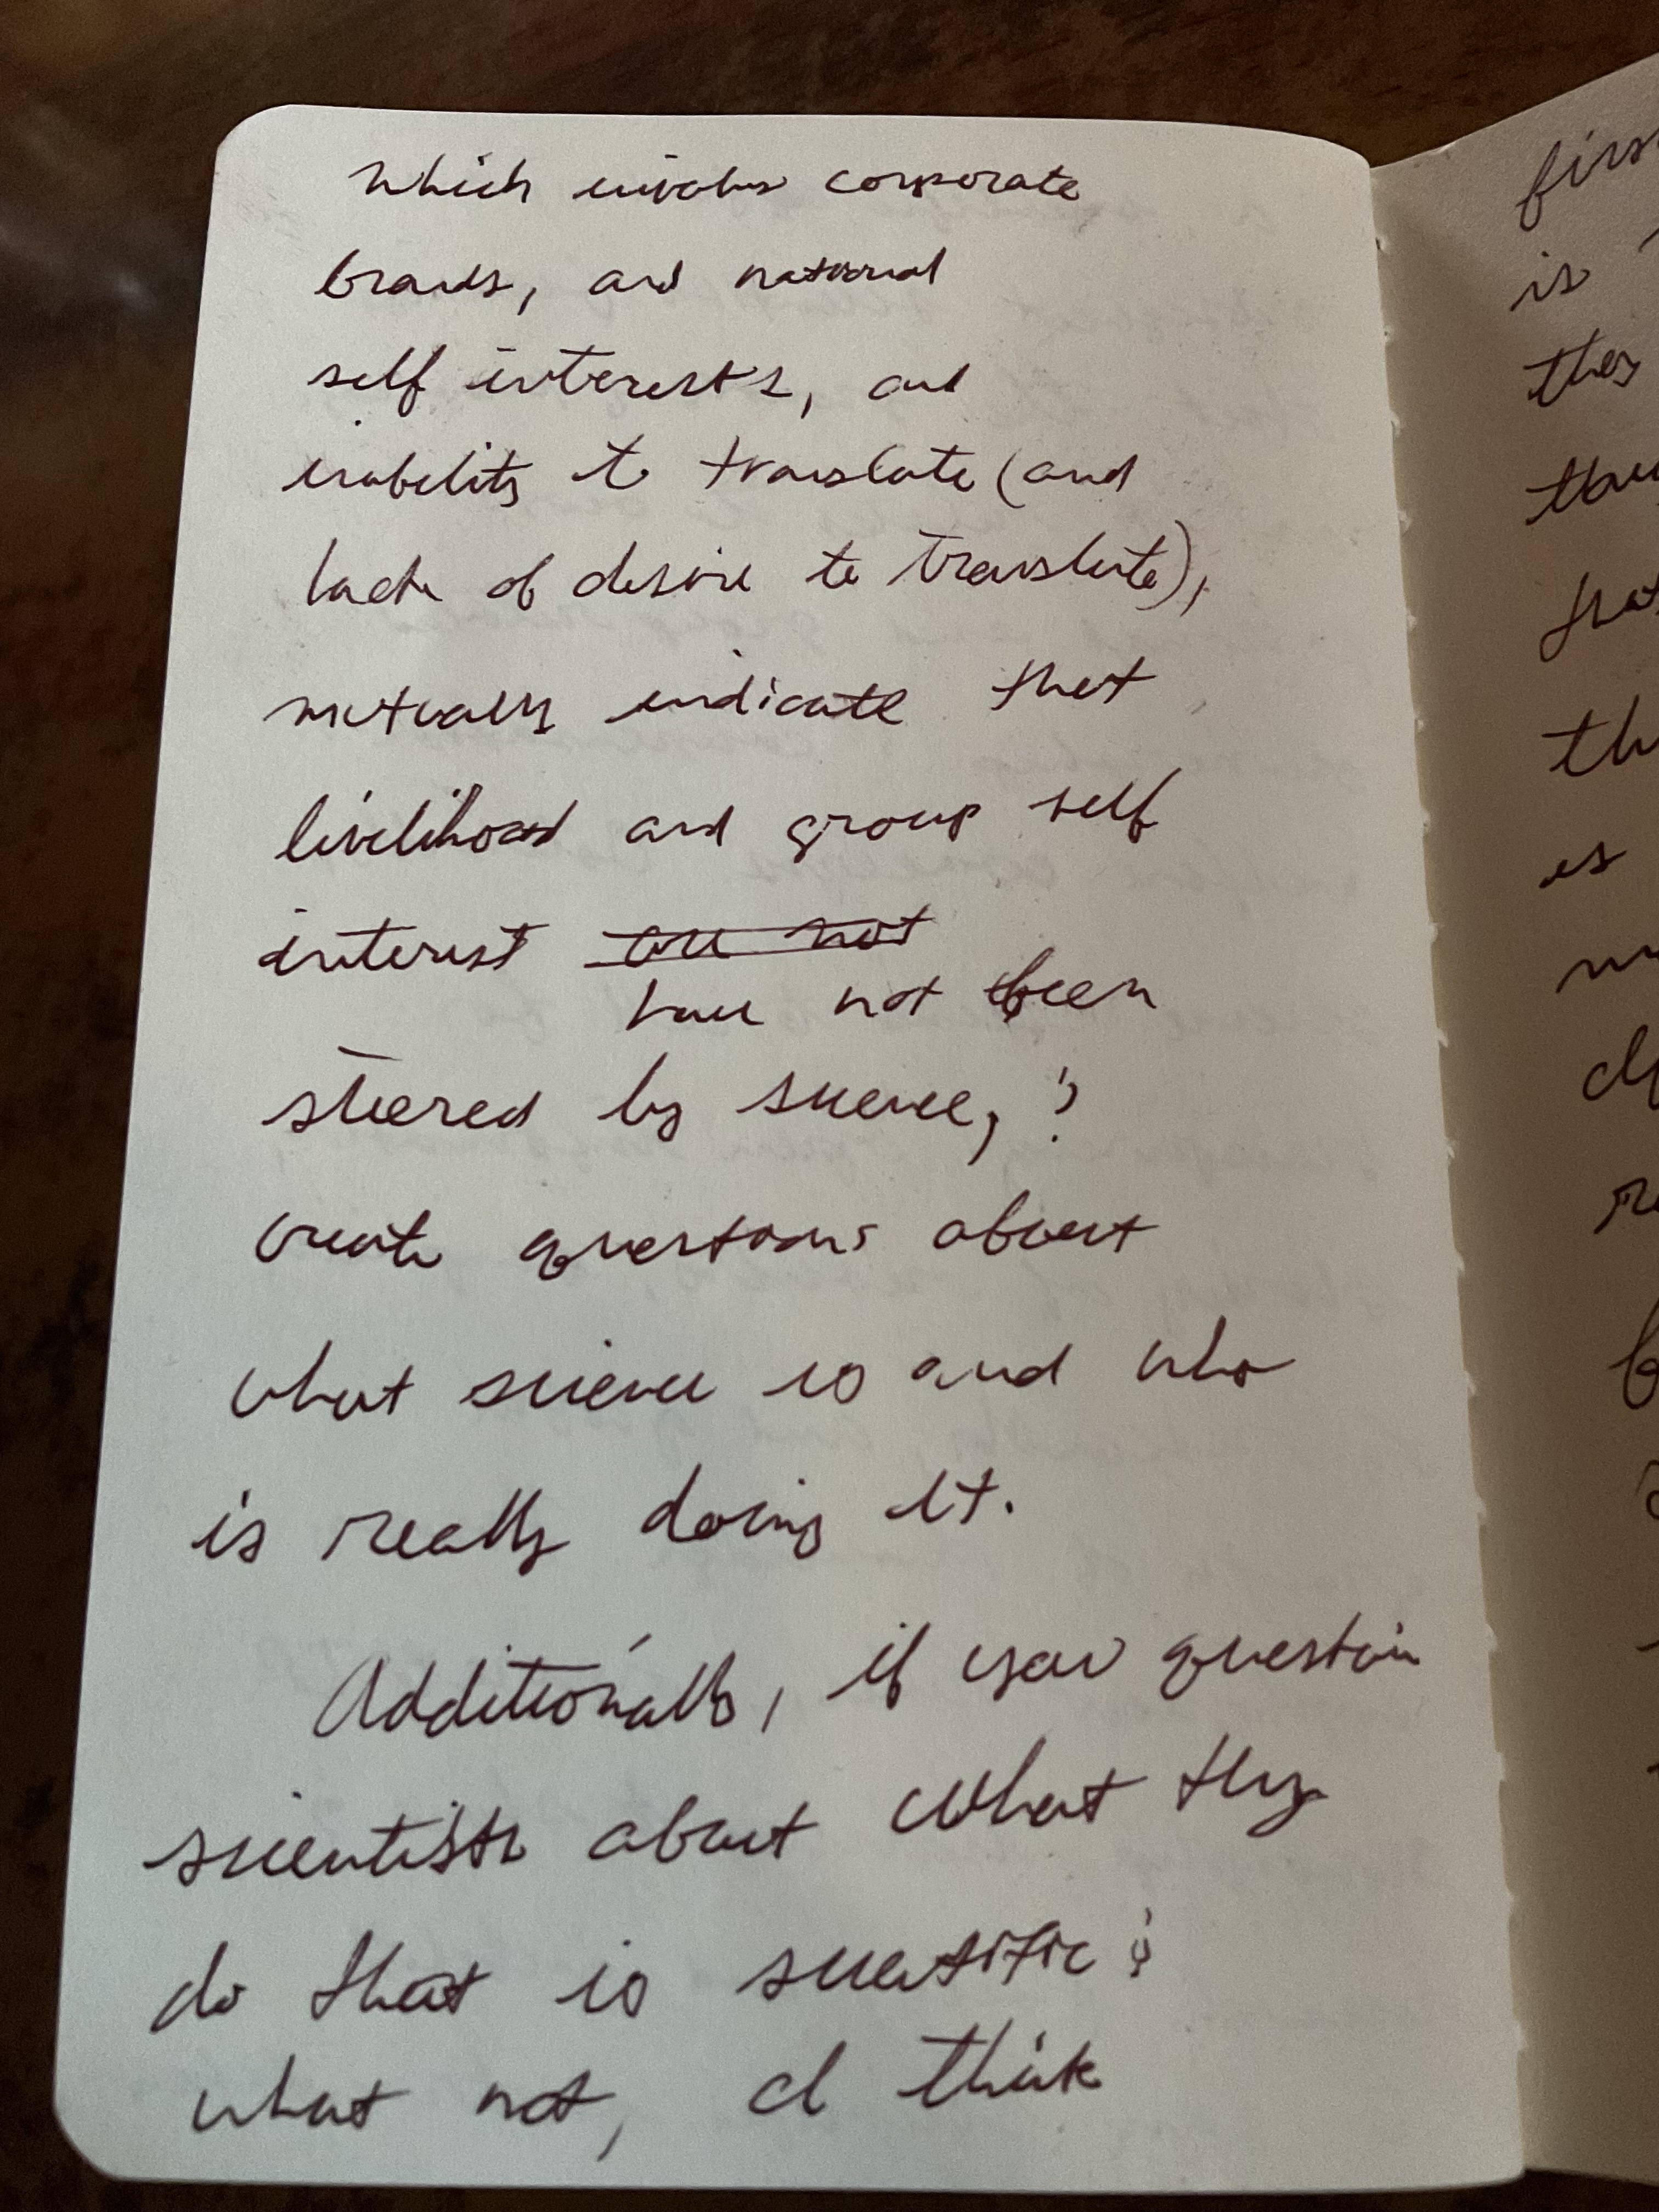 which involves corporate
brands, and national
self interests, and
inability to translate (and
lack of desire to translate),
mutually indicate that
livelihood and group self
interest are not
have not been
steered by science, &
create questions about
what science is and who
is really doing it.
Additionally, if you question
scientists about what they
do that is scientific &
what not, I think
first
is
they
that
th
es